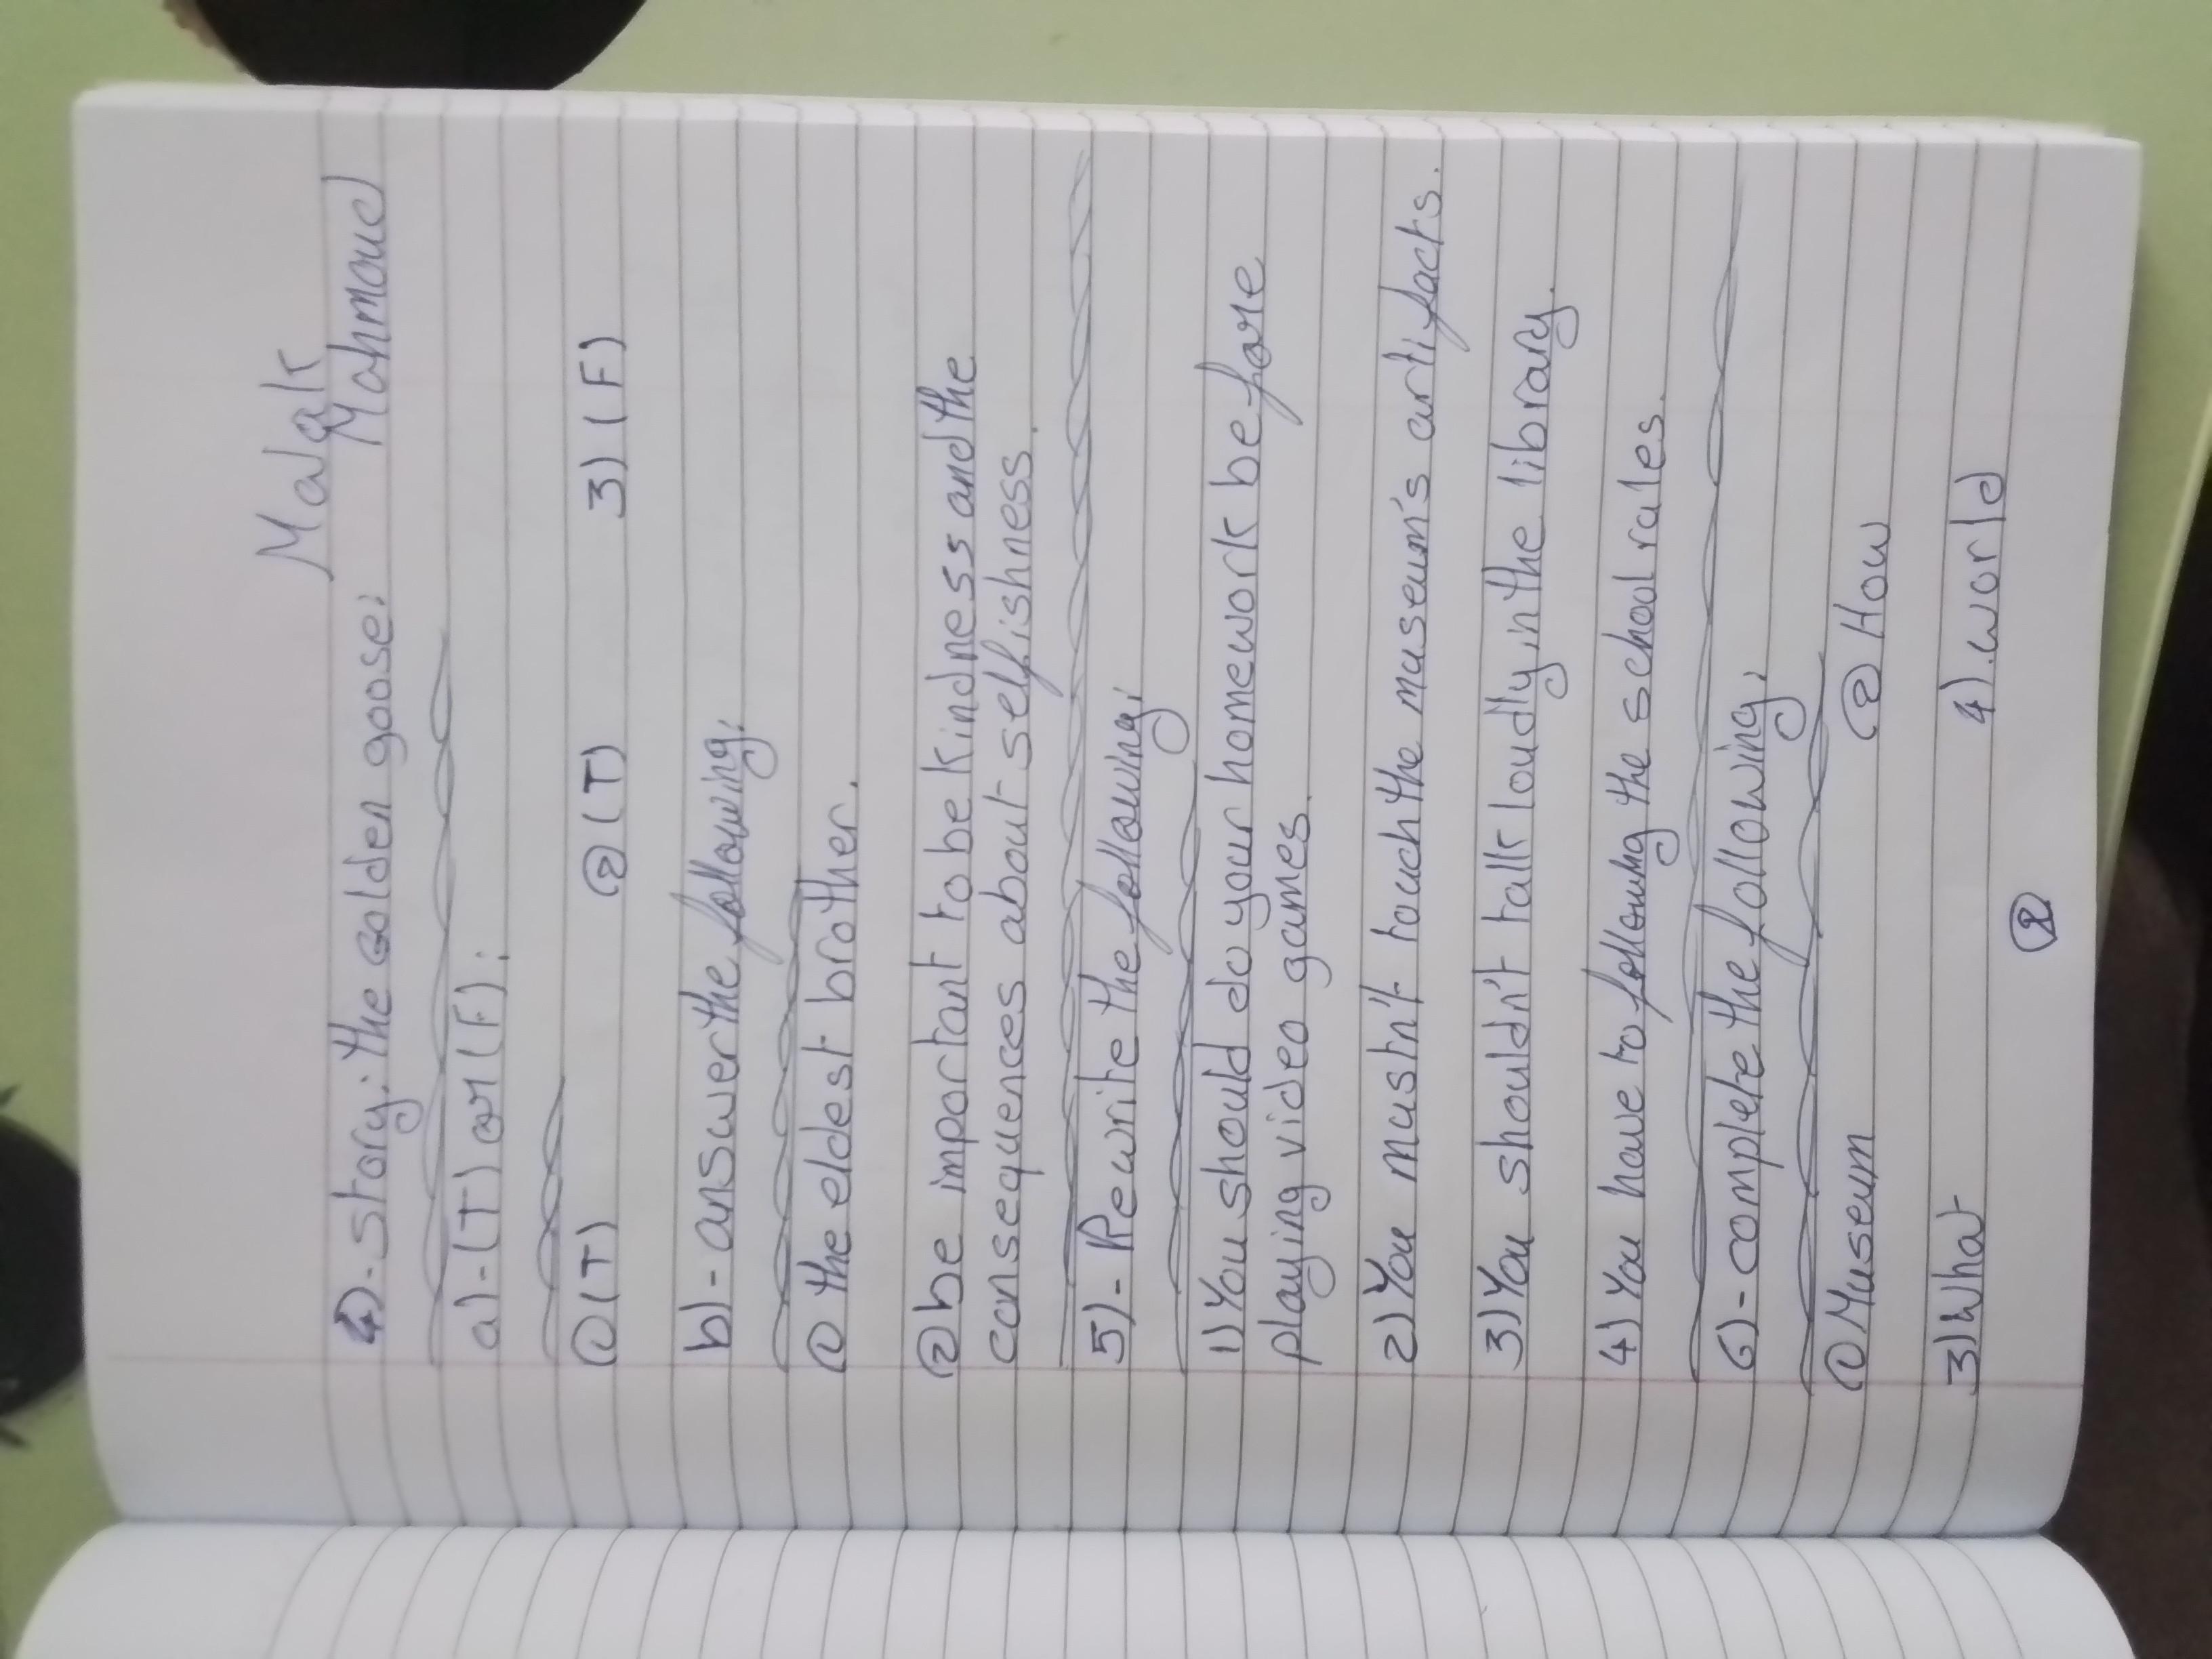 Malak
Mahmoud
4)- story: the golden goose:
a)- (T) or (F):
① (T) ② (T) 3) (F)
b)- answer the following:
① the eldest brother.
② be important to be kindness and the
consequences about selfishness.
5)- Rewrite the following:
1) You should do your homework before
playing video games.
2) You mustn't touch the museum's artifacts.
3) You shouldn't talk loudly in the library.
4) You have to following the school rules.
6)- complete the following:
① Museum ② How
3) What 4) world
②